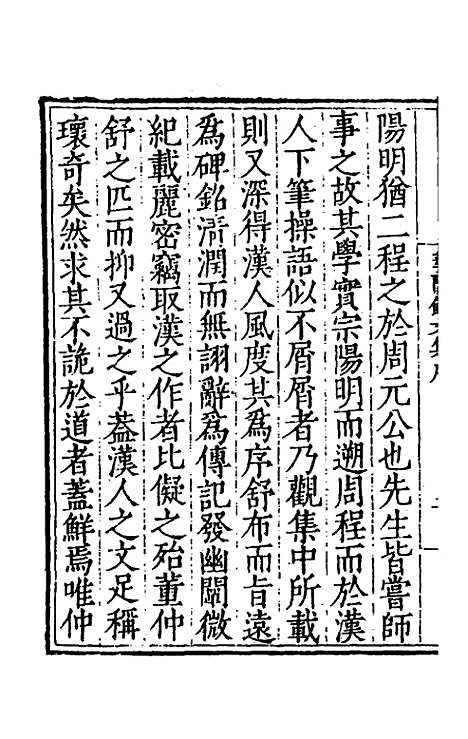 陽明猶二程之於周元公也先生皆嘗師
事之故其學實宗陽明而遡周程而於漢
人下筆操語似不屑屑者乃觀集中所載
則又深得漢人風度其為序舒布而旨遠
為碑銘清潤而無詡辭為傳記發幽闡微
紀載麗密竊取漢之作者比儗之殆董仲
舒之匹而抑又過之乎葢漢人之文足稱
瓌奇矣然求其不詭於道者蓋鮮焉唯仲